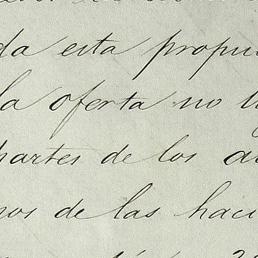 da esta propu
la oferta no ll
partes de los a
nos de las haci